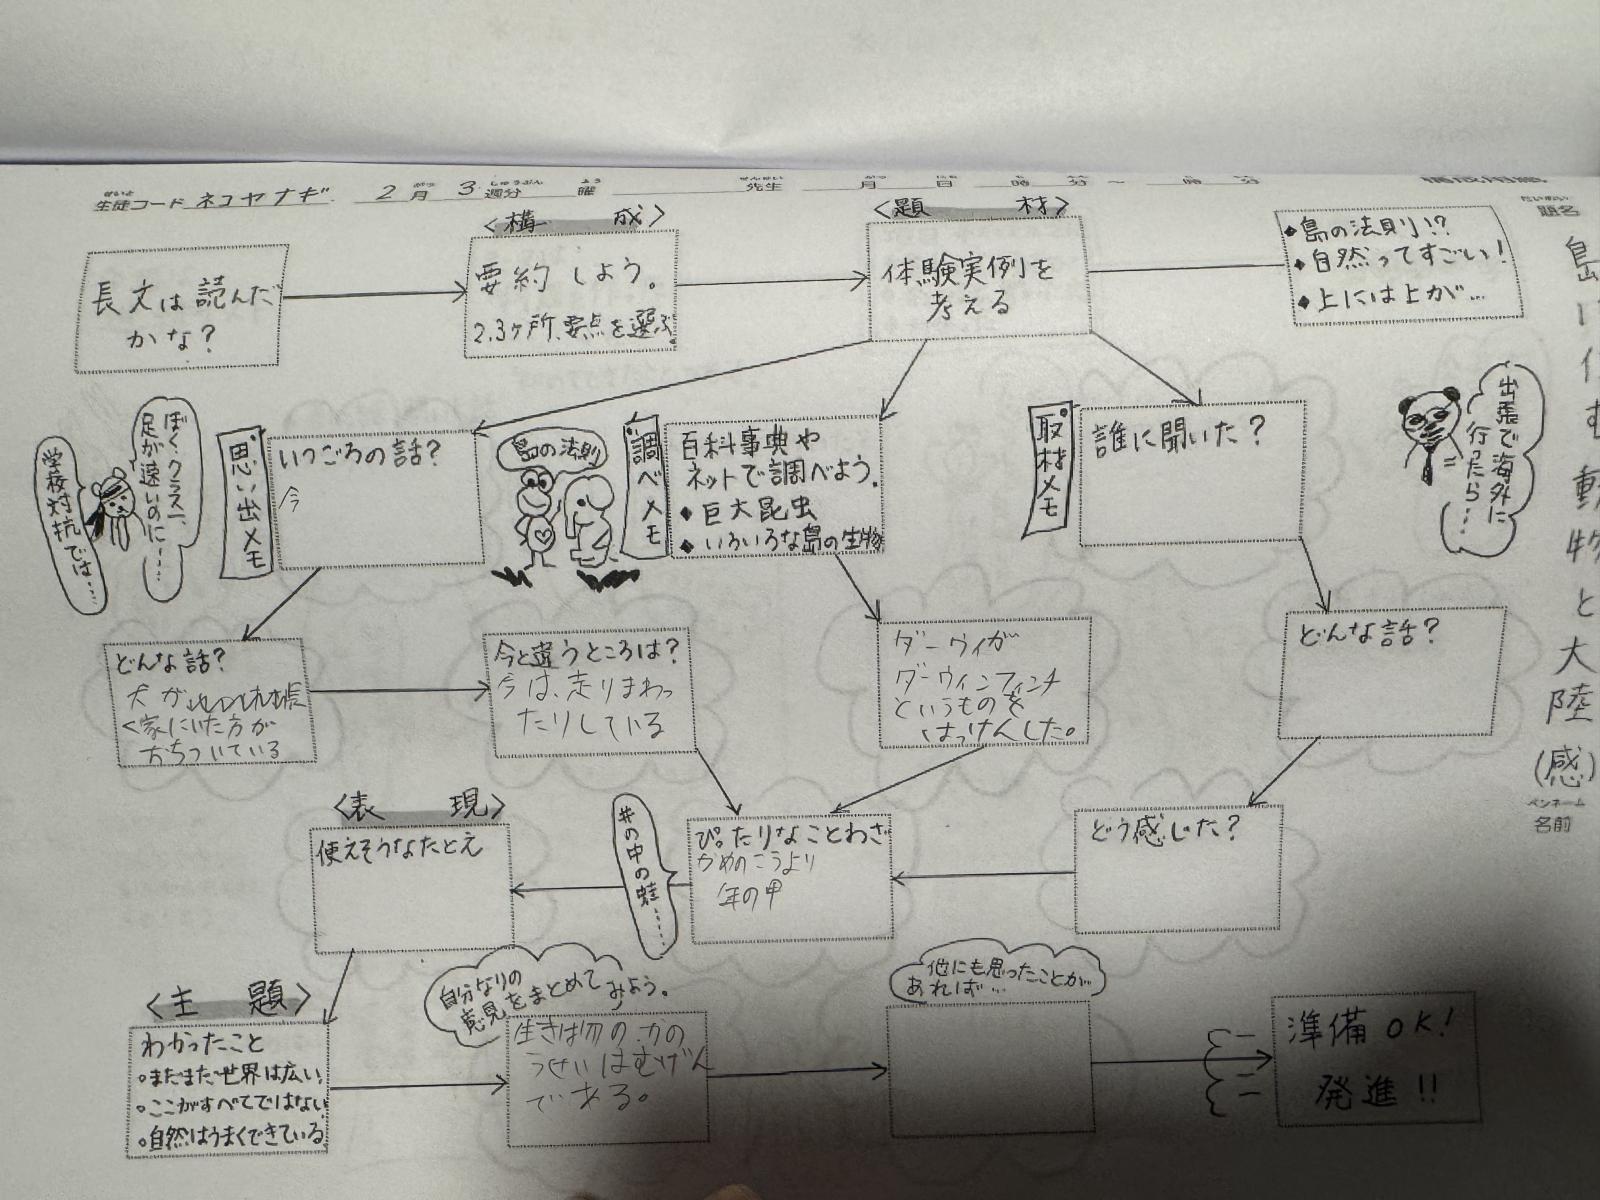 生徒コード ネコヤナギ 2月 3週分 曜 先生 月 日 時 分 ~ 時 分
<構成>
<題材>
題名
島に住む動物と大陸(感)
ペンネーム
名前
長文は読んだ
かな?
要約しよう。
2.3ヶ所、要点を選ぶ
体験実例を
考える
◆島の法則!?
◆自然ってすごい!
◆上には上が…
学校対抗では……
ぼく、クラス一、
足が速いのに……
思い出メモ
いつごろの話?
今
島の法則
調べメモ
百科事典や
ネットで調べよう。
◆巨大昆虫
◆いろいろな島の生物
取材メモ
誰に聞いた?
出張で海外に
行ったら……
どんな話?
犬が
く家にいた方が
おちついている
今と違うところは?
今は、走りまわっ
たりしている
ダーウィが
ダーウィンフィンチ
というものを
はっけんした。
どんな話?
<表現>
使えそうなたとえ
井の中の蛙……
ぴったりなことわざ
かめのこうより
年の甲
どう感じた?
<主題>
わかったこと
○まだまだ世界は広い
○ここがすべてではない
○自然はうまくできている
自分なりの
意見をまとめて
みよう。
生きは物のかの
うせいはむげん
である。
他にも思ったことが
あれば…
準備OK!
発進!!